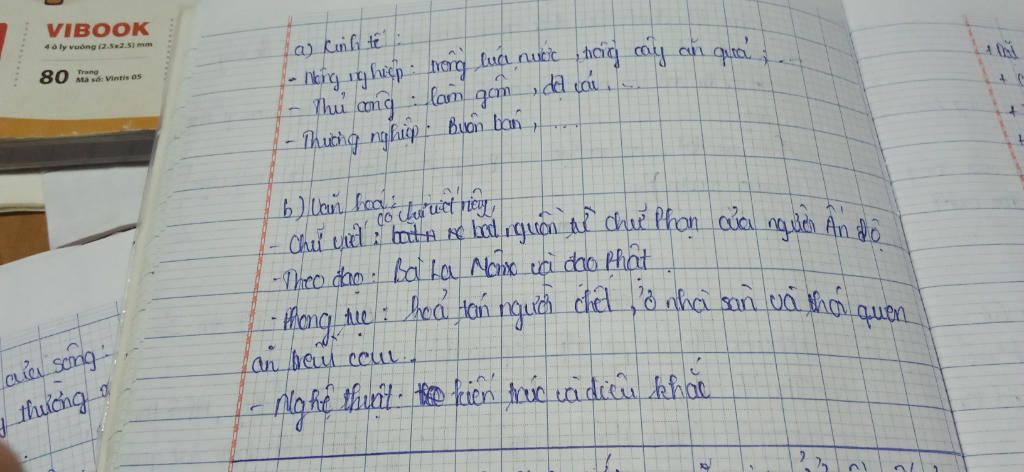 VIBOOK
4 ô ly vuông (2.5x2.5) mm
80 Trang
Mã số: Vintis 05
a) Kinh tế :
- Nông nghiệp : trồng lúa nước , trồng cây ăn quả ; ...
- Thủ công : làm gốm , dệt vải , ...
- Thương nghiệp : Buôn bán , ...
b) Văn hoá :
có chữ viết riêng,
- Chữ viết : bắt nguồn từ chữ Phạn của người Ấn Độ
- Theo đạo : Bà La Môn và đạo Phật
- Phong tục : hoả táng người chết , ở nhà sàn và thói quen
ăn trầu cau .
- Nghệ thuật : kiến trúc và điêu khắc
cửa sông :
thường